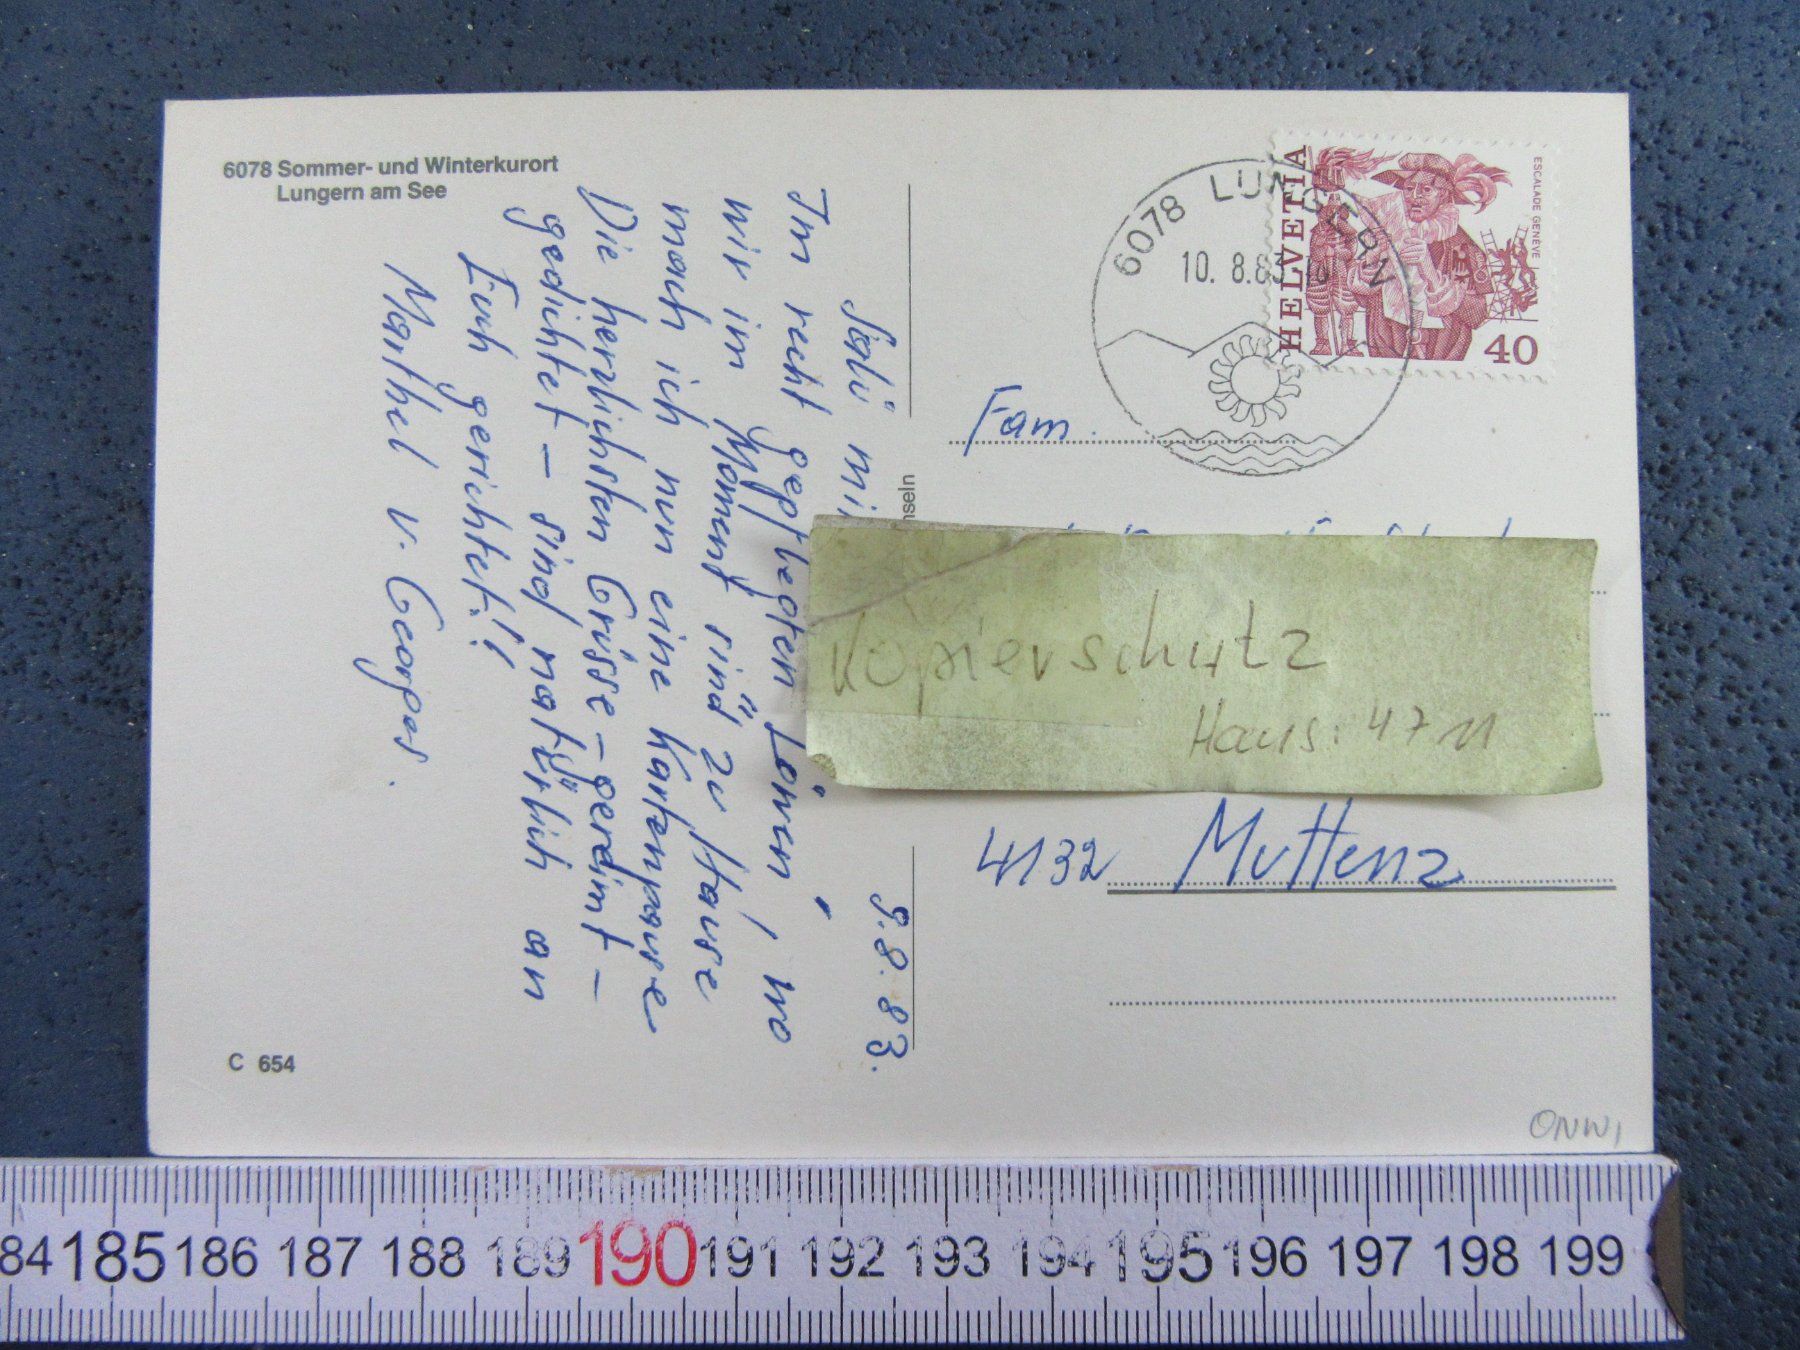 6078 Sommer- und Winterkurort
Lungern am See
9.8.83.
Im recht gepflegten Löwen, wo
wir im Moment sind zu Hause
mach ich nun eine Kartenpause
Die herzlichsten Grüsse – gereimt –
gedichtet – sind natürlich an
Euch gerichtet!!
Marthel v. Georges.
C 654
nseln
6078 LUNGERN
10.8.83
HELVETIA
ESCALADE GENÈVE
40
Fam.
Kopierschutz
Haus: 4711
4132 Muttenz
ONW1
84 185 186 187 188 189 190 191 192 193 194 195 196 197 198 199